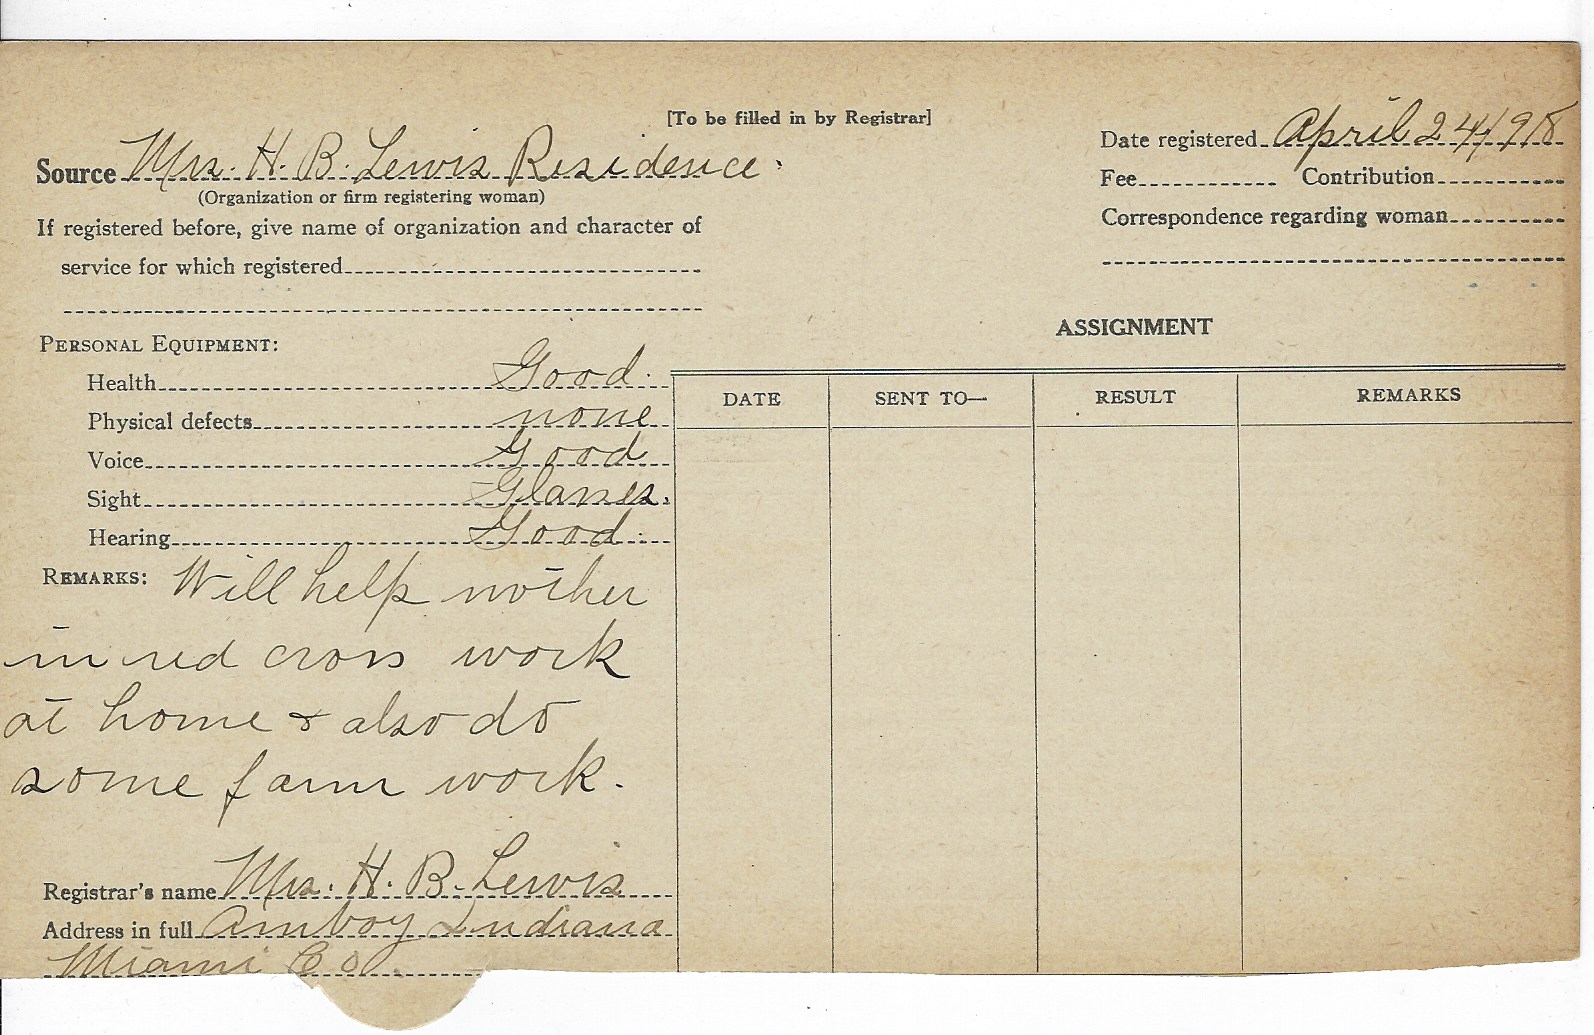 [To be filled in by Registrar]
Source Mrs. H. B. Lewis Residence.
(Organization or firm registering woman)
If registered before, give name of organization and character of
service for which registered
Date registered April 24/918
Fee Contribution
Correspondence regarding woman
PERSONAL EQUIPMENT:
Health Good.
Physical defects none
Voice Good
Sight Glasses.
Hearing Good.
REMARKS: Will help mother
in red cross work
at home & also do
some farm work.
Registrar's name Mrs. H. B. Lewis
Address in full Amboy Indiana
Miami Co.
ASSIGNMENT
DATE SENT TO— RESULT REMARKS